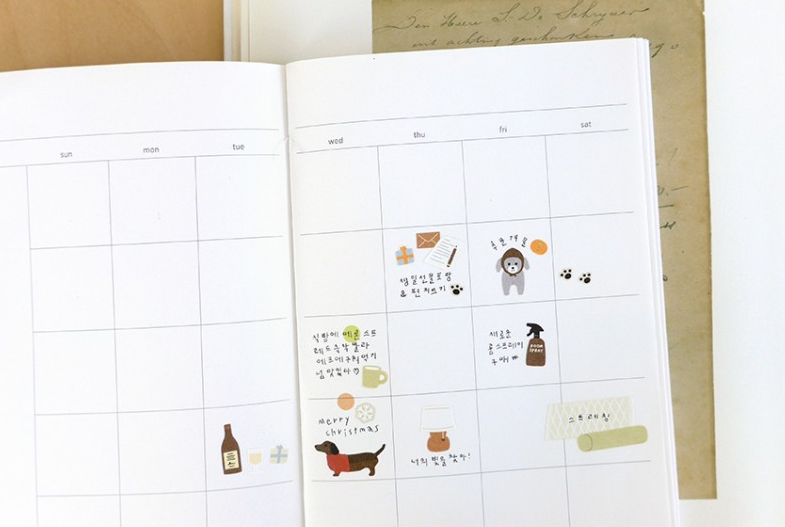 Den Heere L. De Schryver
met achting geschonken
sun
mon
tue
wed
thu
fri
sat
생일선물포장
& 편지쓰기
추운겨울
식빵에 에론 스프
레드 쭈악 발라
에프에구워먹기
넘 맛있다
새로운
룸스프레이
구매
ROOM
SPRAY
Merry
christmas
너의 빛을 찾아!
스트레칭